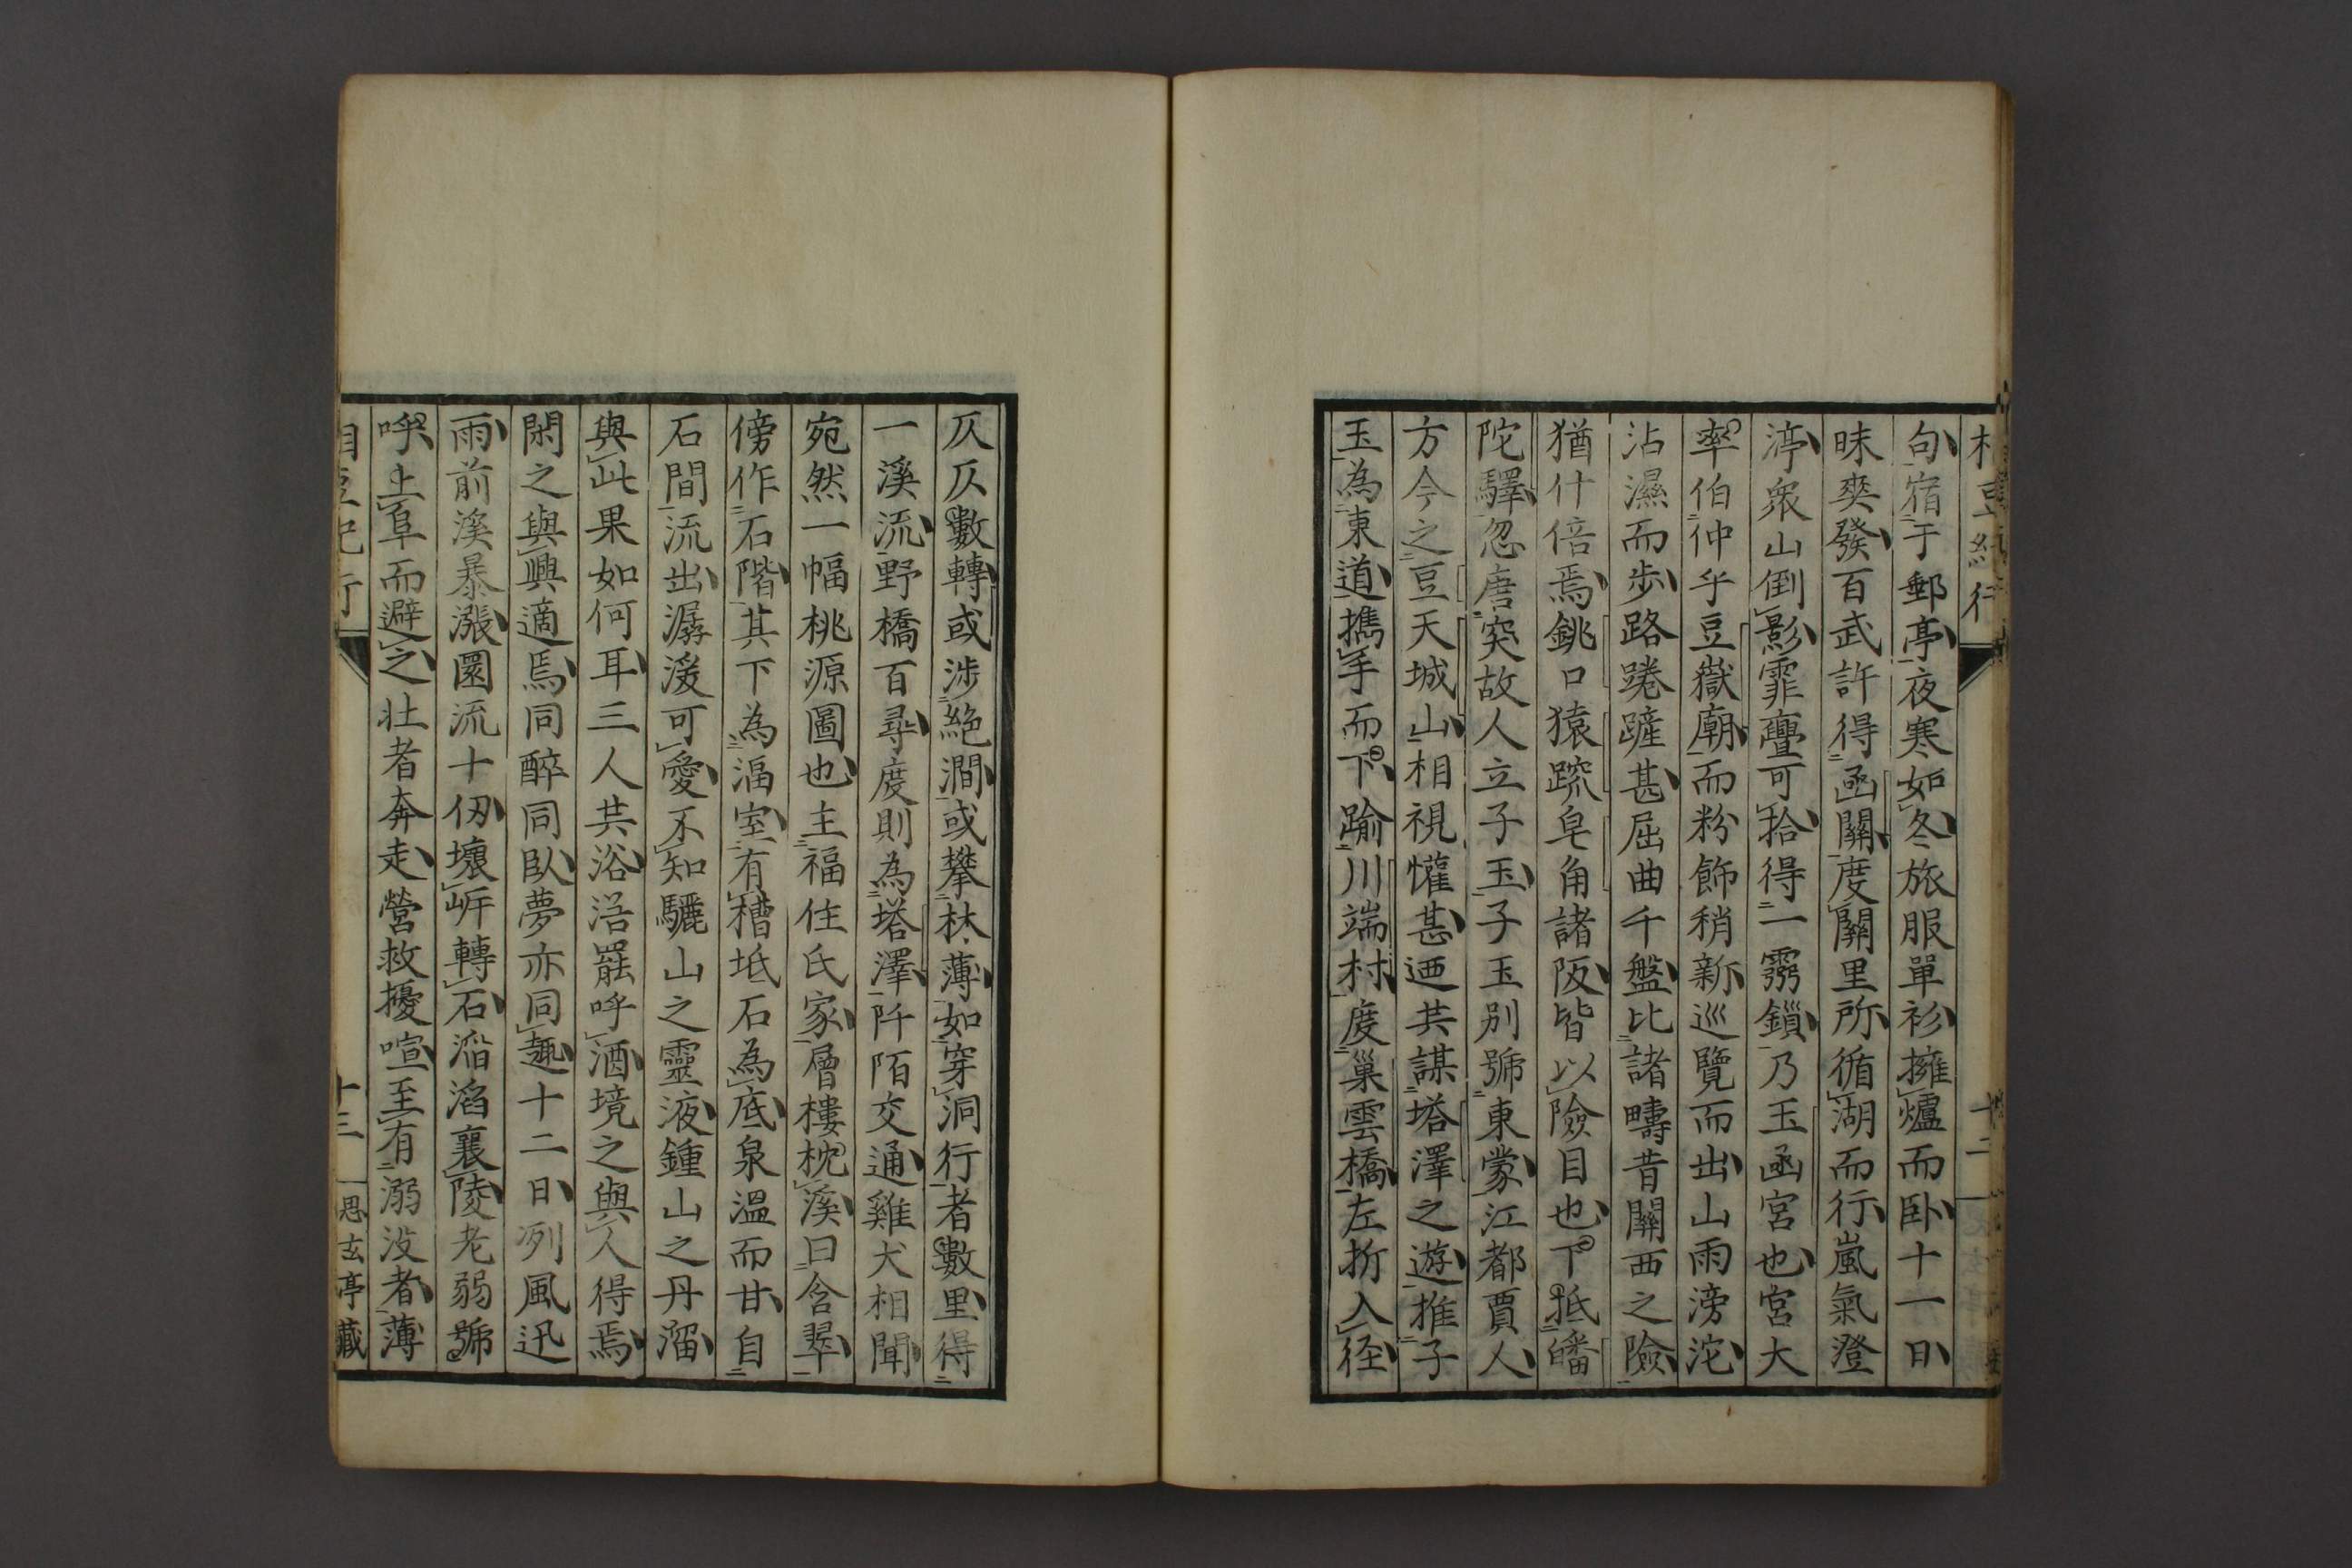 相豆紀行
十二
句宿于郵亭夜寒如冬旅服單衫擁爐而臥十一日
昧爽發百武許得函關度關里所循湖而行嵐氣澄
渟衆山倒影霏亹可拾得一霱鎖乃玉函宮也宮大
率伯仲乎豆嶽廟而粉飾稍新巡覽而出山雨滂沱
沾濕而步路蜷𨄾甚屈曲千盤比諸疇昔關西之險
猶什倍焉銚口猿蹤皂角諸阪皆以險目也下抵皤
陀驛忽唐突故人立子玉子玉別號東蒙江都賈人
方今之豆天城山相視懽甚迺共謀塔澤之遊推子
玉為東道攜手而下踰川端村度巢雲橋左折入径
仄仄數轉或涉絶澗或攀林薄如穿洞行者數里得
一溪流野橋百尋度則為塔澤阡陌交通雞犬相聞
宛然一幅桃源圖也主福住氏家層樓枕溪曰含翠
傍作石階其下為湢室有槽坻石為底泉溫而甘自
石間流出潺湲可愛不知驪山之靈液鍾山之丹溜
與此果如何耳三人共浴浴罷呼酒境之與人得焉
閑之與興適焉同醉同臥夢亦同趣十二日冽風迅
雨前溪暴漲圜流十仞壞㟁轉石滔滔襄陵老弱號
呼上阜而避之壯者奔走營救擾喧至有溺没者薄
相豆紀行
十三
思玄亭藏